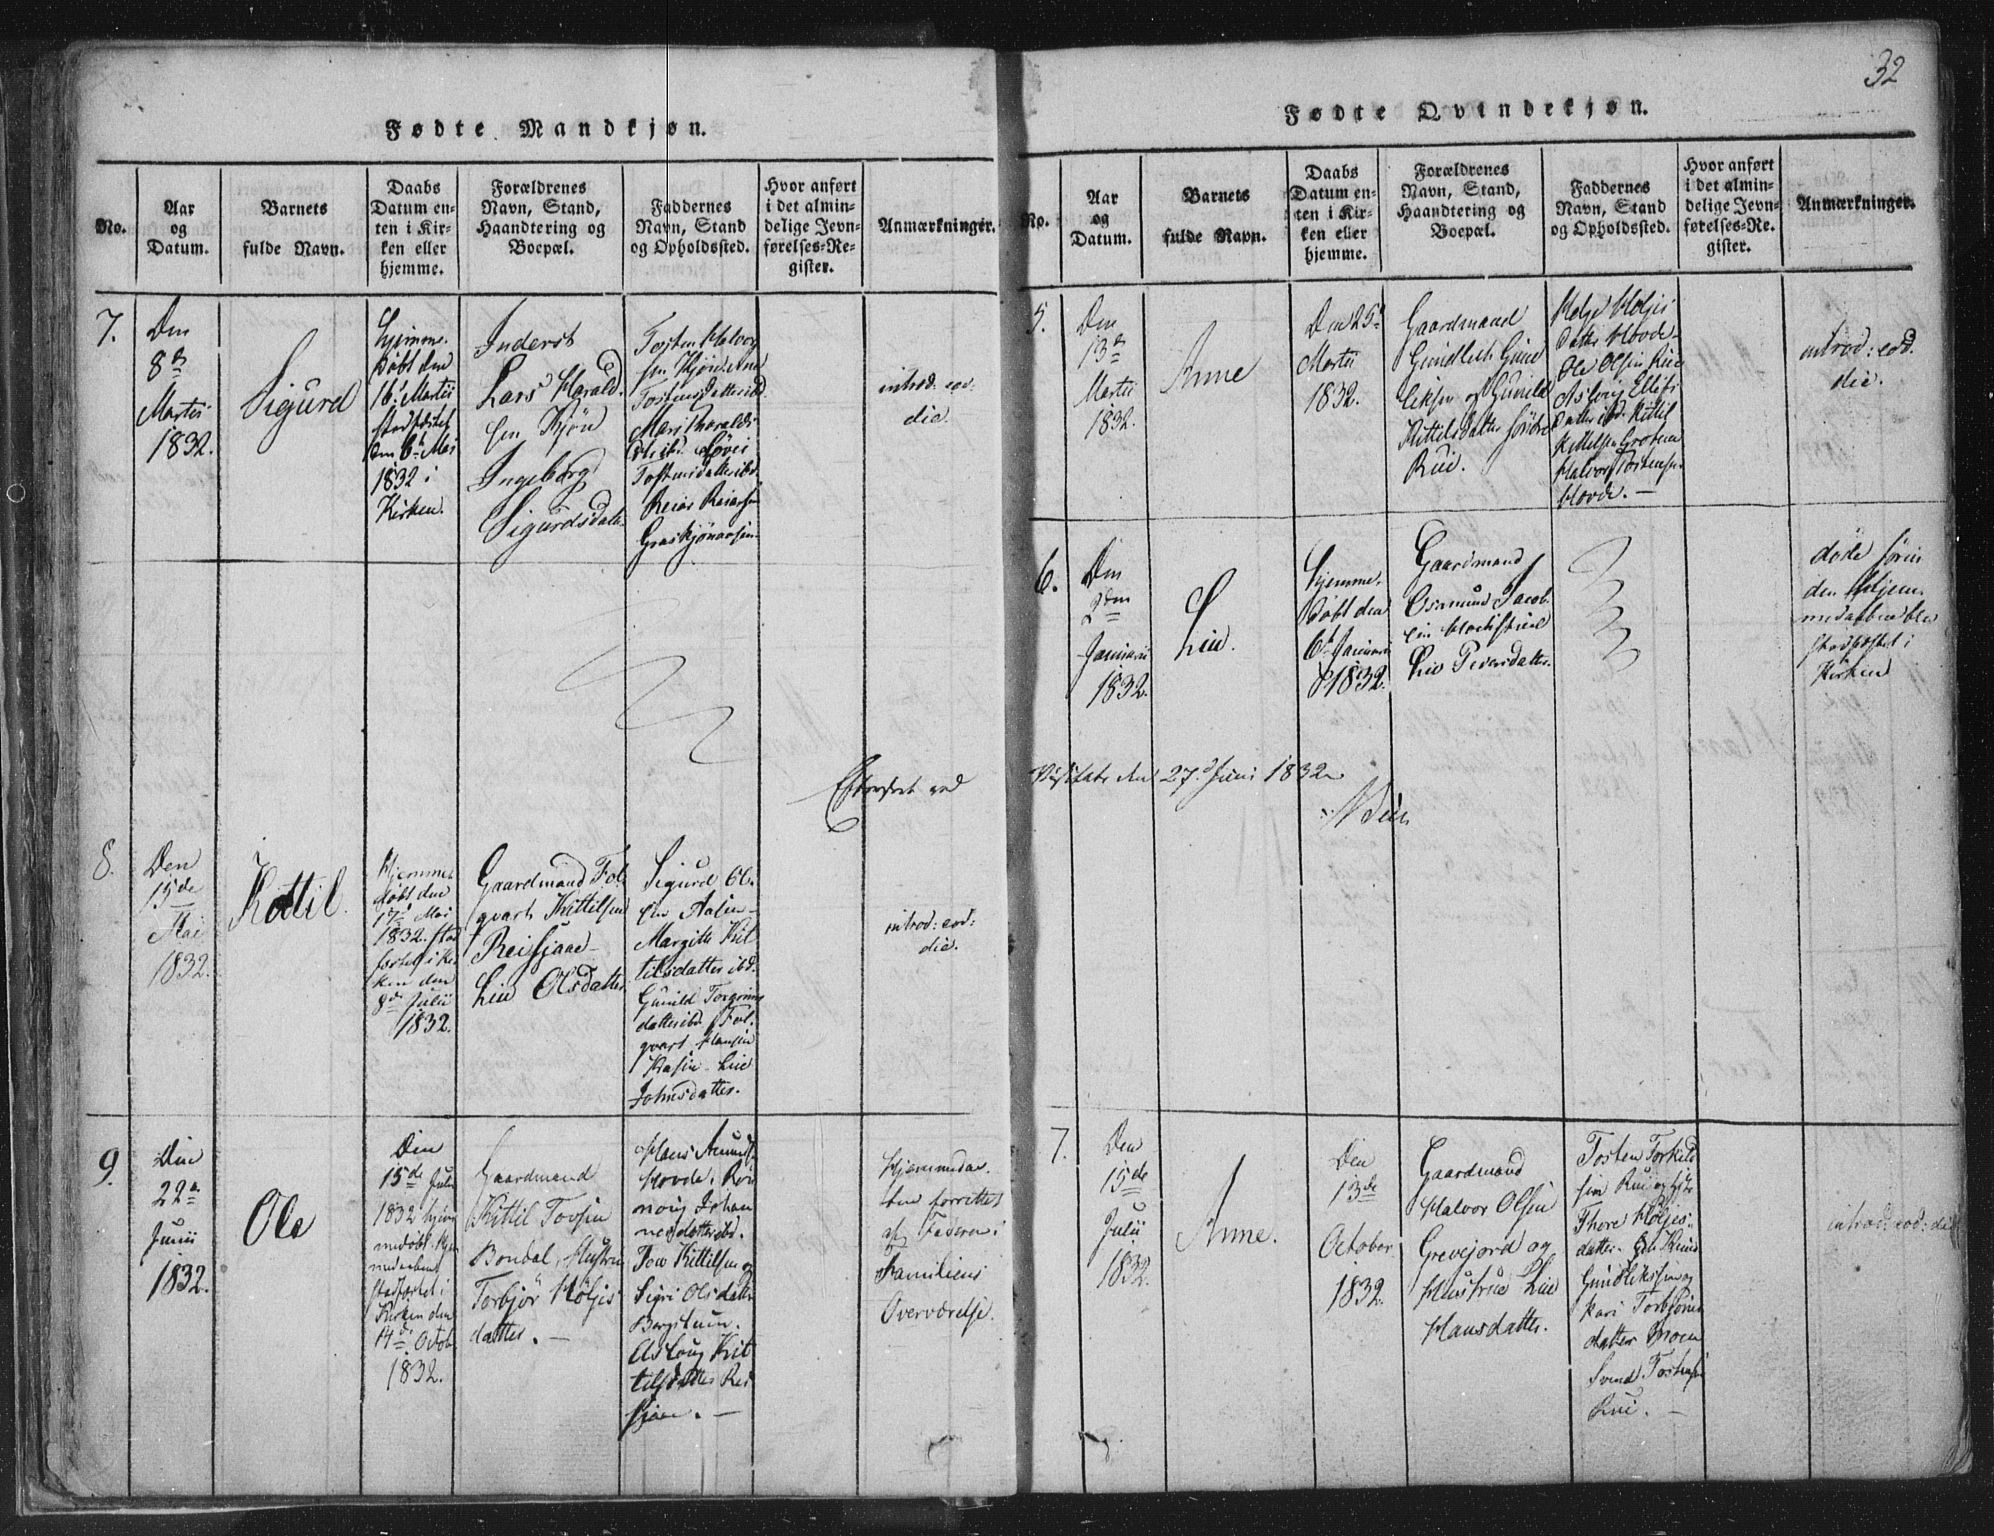 32
Fødte Mandkjøn.
No.
Aar
og
Datum.
Barnets
fulde Navn.
Daabs
Datum en-
ten i Kir-
ken eller
hjemme.
Forældrenes
Navn, Stand,
Haandtering og
Boepæl.
Faddernes
Navn, Stand
og Opholdssted.
Hvor anført
i det almin-
delige Jevn-
førelses-Re-
gister.
Anmærkninger.
7.
Den
8de
Martii
1832.
Sigurd
hjemme-
døbt den
16. Martii
stadfæstet
den 6te Mai
1832 i
Kirken.
Inderst
Lars Harald
sen Kjøn
Ingeborg
Sigurdsdatt.
Tosten Halvor
sen Kjøn. Ane
Tostensdatter ibd.
Mari Haralds
Tostensdatter ibd.
introd: eod.
die.
8.
Den
15de
Mai
1832.
Kittil.
Hjemme
døbt den
17de Mai
1832. stad
fæstet i Kir
ken den
8de Julii
1832.
Gaardmand Fol
qvart Kittilsen
Reisjaae
Liv Olsdatter
Sigurd Ol
sen Aasen
Margith Kit
tilsdatter ibd.
Gunild Torgrims
datter ibd. Fol
qvart Hansen
Aasen. Live
Johnsdatter.
introd: eod:
die.
9.
Den
22de
Junii
1832.
Ole
Den
15de Julii
1832 hjem
medøbt. Hjem
medaaben
stadfæstet i
Kirken den
14de Octob
1832.
Gaardmand
Kittil Tovsen
Bondal, Hustru
Torbjør Høljes
datter.
Hans Amund
Hovde. Røn
noug Johan
nesdatter ibd.
Tov Kittilsen og
Sigri Olsdatter
Asloug Kit
tilsdatter Rei
sjaae.
Hjemmedaa-
ben forrettet
af Faderen i
Familiens
Overværelse.
Efterseet ved
Visitats den 27de Juni 1832
Fødte Qvindekjøn.
No.
Aar
og
Datum.
Barnets
fulde Navn.
Daabs
Datum en-
ten i Kir-
ken eller
hjemme.
Forældrenes
Navn, Stand,
Haandtering og
Boepæl.
Faddernes
Navn, Stand
og Opholdssted.
Hvor anført
i det almin-
delige Jevn-
førelses-Re-
gister.
Anmærkninger.
5.
Den
13de
Martii
1832.
Anne
Den 25de
Martii
1832.
Gaardmand
Gundleik Gun
leiksen og Gunild
Kittilsdatter søndre
Rui.
Helje Høljes
datter Hovde
Ole Olsen Rue
Asloug Ellefs
datter ibd. Kittil
Kittilsen
Halvor Tostensen
Hovde.
introd: eod.
die.
6.
Den
2den
Januarii
1832.
Liv.
Hjemme-
døbt den
6te Januarii
1832.
Gaardmand
Osmund Jacob
sen
Liv Pedersdatter.
døde førin
den Hjem
medaaben blev
stadfæstet i
Kirken
7.
Den
15de
Julii
1832.
Anne.
Den
13de
October
1832.
Gaardmand
Halvor Olsen
Grevejord og
Hustrue Live
Hansdatter.
Tosten Torkild
sen Rui og
Thore Høljes-
datter
Gundleiksen og
Kari Torbjørns
datter Moen
Svend Tostensen
Rui.
introd: eod: die